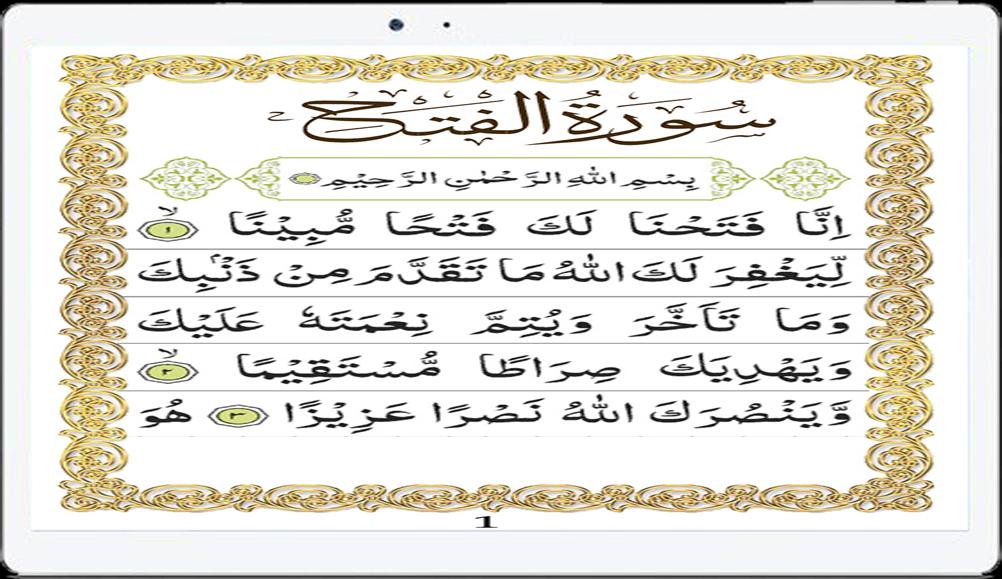 سُوْرَةُ الْفَتْح
بِسْمِ اللهِ الرَّحْمٰنِ الرَّحِيْمِ
اِنَّا فَتَحْنَا لَكَ فَتْحًا مُّبِيْنًا ۙ ۱
لِّيَغْفِرَ لَكَ اللهُ مَا تَقَدَّمَ مِنْ ذَنْۢبِكَ
وَمَا تَاَخَّرَ وَيُتِمَّ نِعْمَتَهٗ عَلَيْكَ
وَيَهْدِيَكَ صِرَاطًا مُّسْتَقِيْمًا ۙ ۲
وَّيَنْصُرَكَ اللهُ نَصْرًا عَزِيْزًا ۳ هُوَ
1